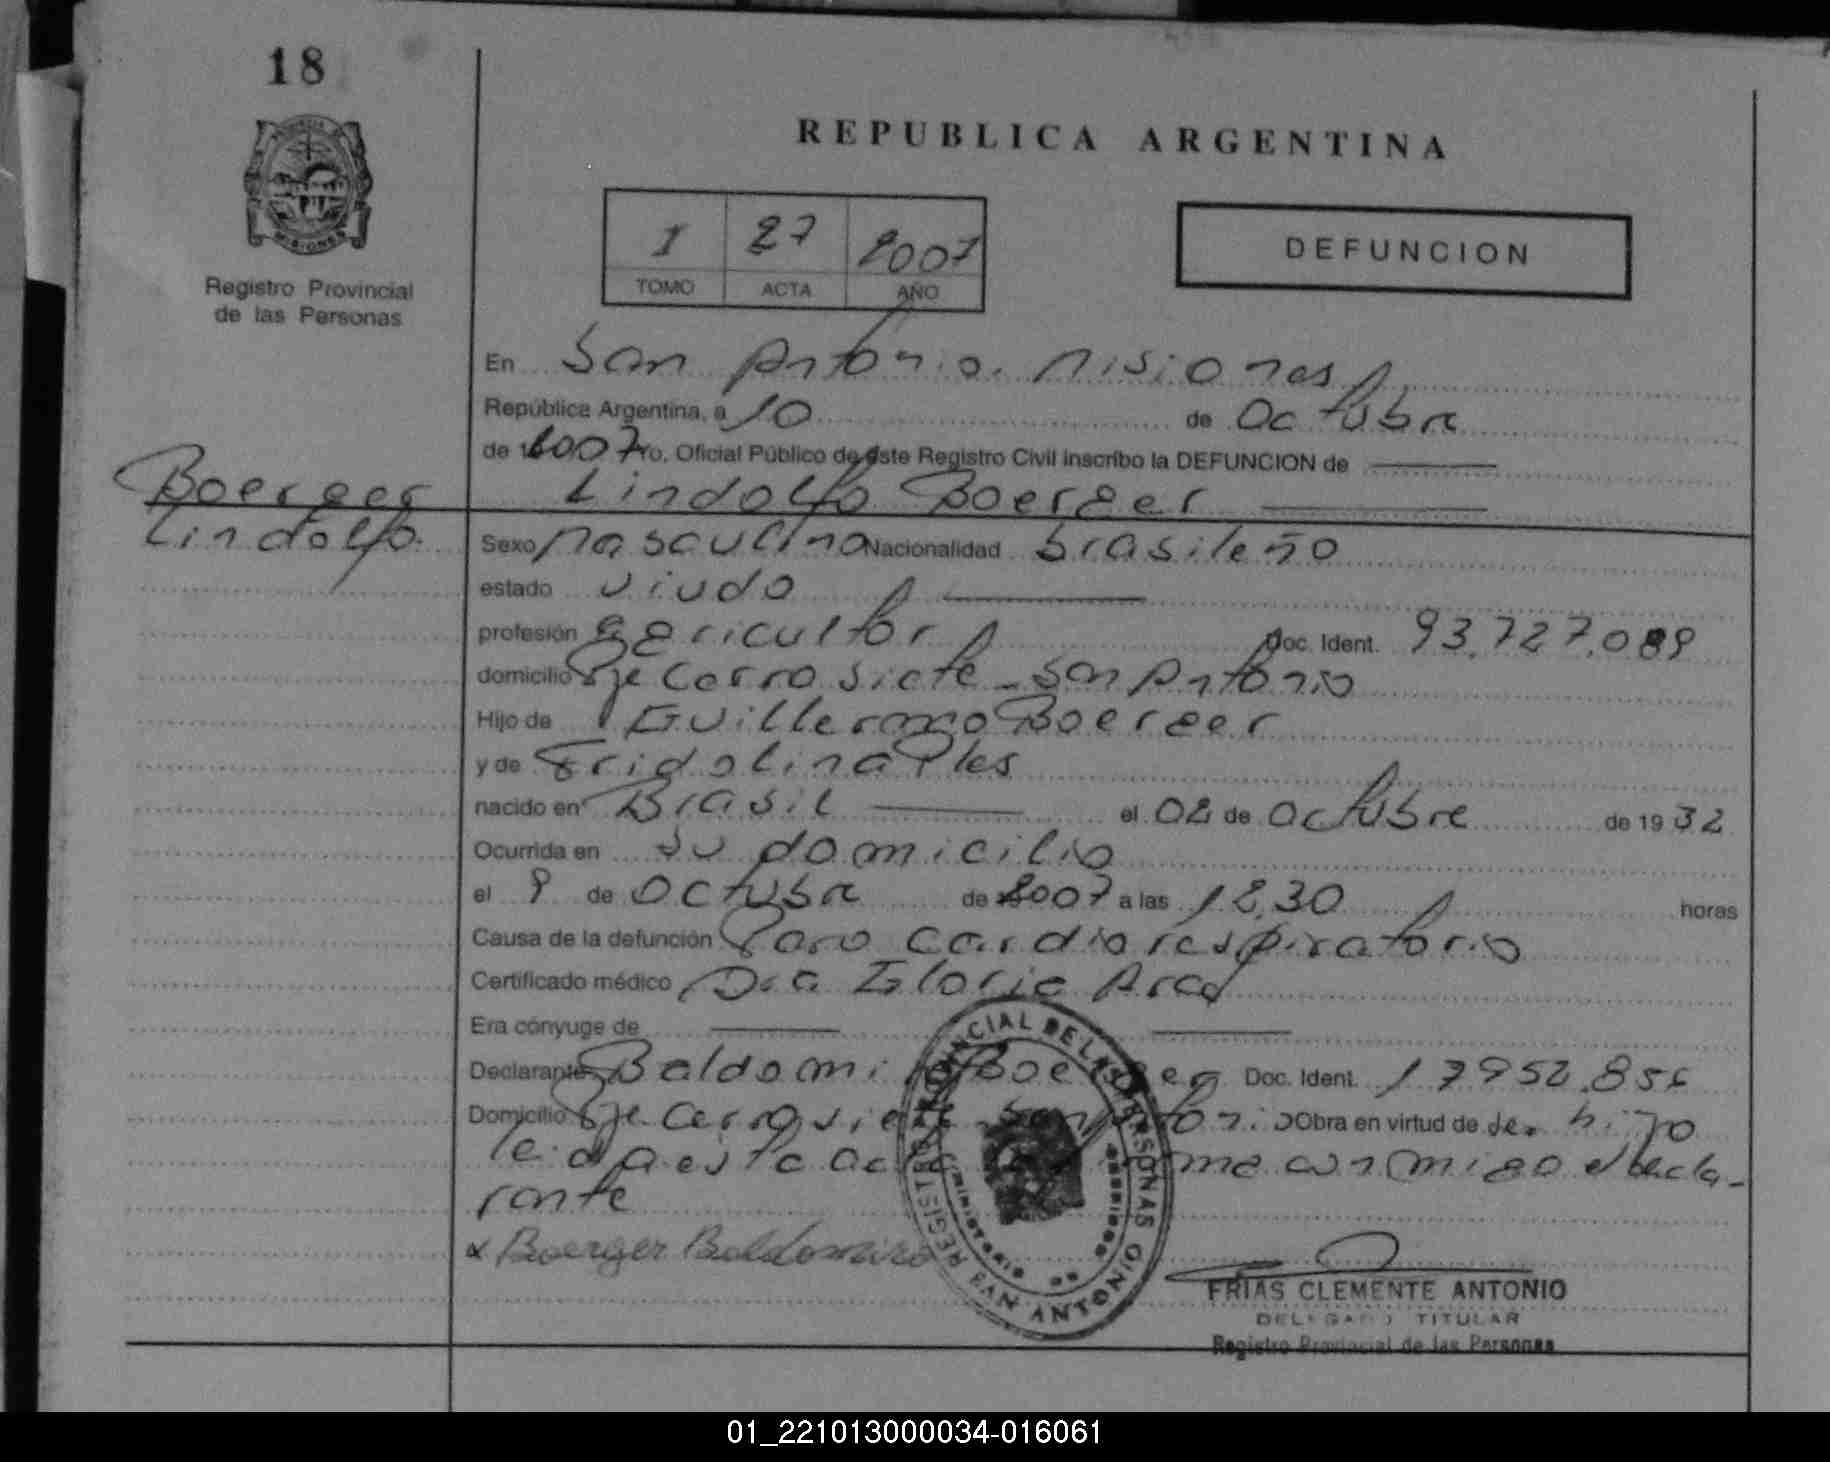 18
PROVINCIA DE
MISIONES
Registro Provincial
de las Personas
REPUBLICA ARGENTINA
1 27 2007
TOMO ACTA AÑO
DEFUNCION
En San Antonio. Misiones
República Argentina, a 10 de Octubre
de 2007 Yo, Oficial Público de este Registro Civil inscribo la DEFUNCION de
Boerger
Lindolfo.
Lindolfo Boerger
Sexo Masculino Nacionalidad brasileño
estado viudo
profesión agricultor Doc. Ident. 93.727.089
domicilio Pje Cerro siete - San Antonio
Hijo de Guillermo Boerger
y de Fridolina Ples
nacido en Brasil el 02 de Octubre de 1932
Ocurrida en su domicilio
el 9 de Octubre de 2007 a las 12,30 horas
Causa de la defunción Paro cardio respiratorio
Certificado médico Dra Gloria Arce
Era cónyuge de
Declarante Baldomiro Boerger Doc. Ident. 17952.856
Domicilio Pje Cerro siete San Antonio Obra en virtud de ser hijo
leida esta acta firma conmigo el decla-
rante
x Boerger Baldomiro
REGISTRO PROVINCIAL DE LAS PERSONAS
MINISTERIO DE
SAN ANTONIO
FRIAS CLEMENTE ANTONIO
DELEGADO TITULAR
Registro Provincial de las Personas
01_221013000034-016061